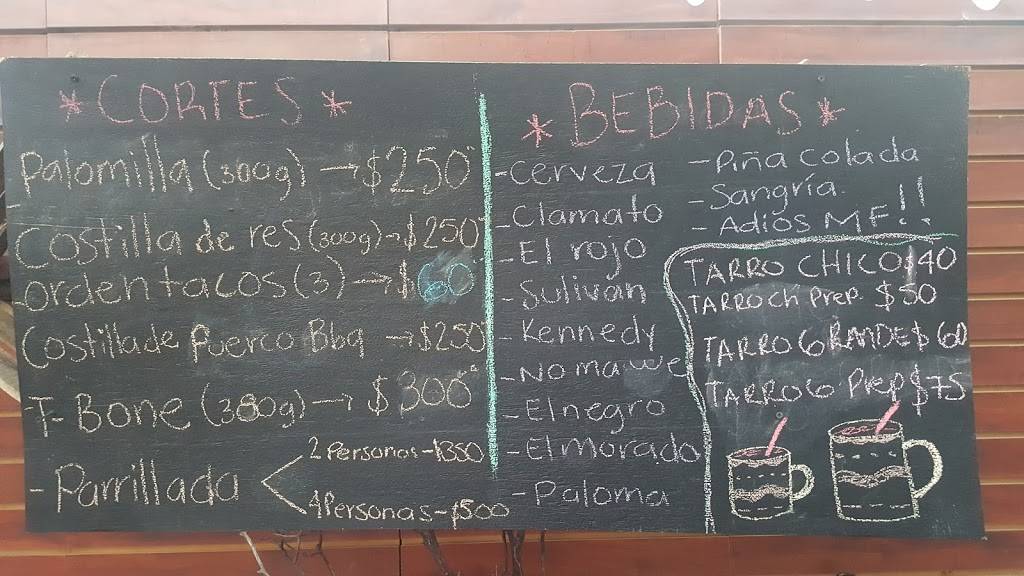 * CORTES *
Palomilla (300g) → $250
Costilla de res (300g) → $250
Orden tacos (3) → $60
Costilla de Puerco Bbq → $250
T-Bone (380g) → $300
- Parrillada
2 Personas - $350
4 Personas - $500
* BEBIDAS *
- Cerveza
- Clamato
- El rojo
- Sulivan
- Kennedy
- No mawe
- El negro
- El Morado
- Paloma
- Piña colada
- Sangría
- Adios MF!!
TARRO CHICO $40
TARRO CH Prep $50
TARRO GRANDE $60
TARRO G Prep $75